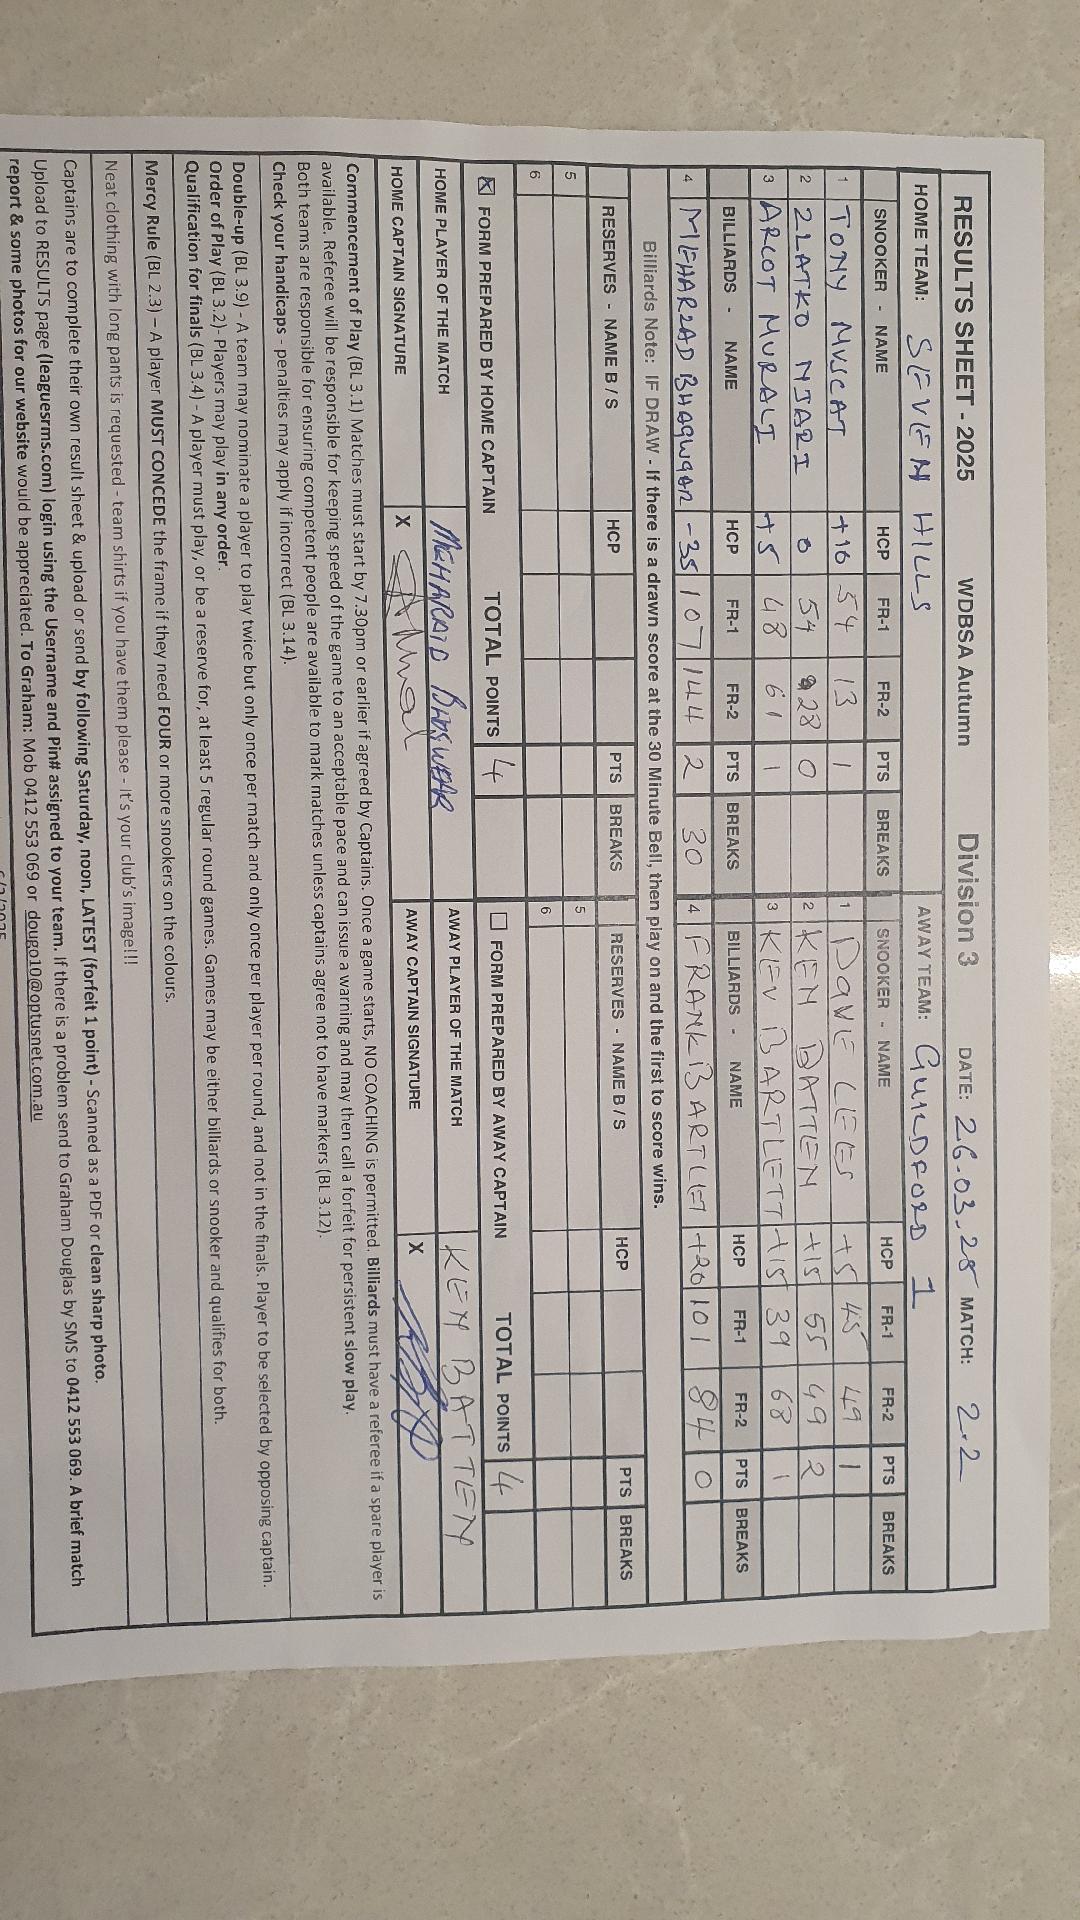 RESULTS SHEET - 2025 WDBSA Autumn Division 3 DATE: 26.03.25 MATCH: 2.2
HOME TEAM: SEVEN HILLS AWAY TEAM: GUILDFORD 1
SNOOKER - NAME HCP FR-1 FR-2 PTS BREAKS SNOOKER - NAME HCP FR-1 FR-2 PTS BREAKS
1 TONY MUSCAT +10 54 13 1 1 DAVE LEES +5 45 49 1
2 ZLATKO NJARI 0 54 28 0 2 KEN BATTEN +15 55 49 2
3 ARCOT MURALI +5 48 61 1 3 KEV BARTLETT +15 39 68 1
BILLIARDS - NAME HCP FR-1 FR-2 PTS BREAKS BILLIARDS - NAME HCP FR-1 FR-2 PTS BREAKS
4 MEHARZAD BHAGWGAR -35 107 144 2 30 4 FRANK BARTLET +20 101 84 0
Billiards Note: IF DRAW - If there is a drawn score at the 30 Minute Bell, then play on and the first to score wins.
RESERVES - NAME B / S HCP PTS BREAKS RESERVES - NAME B / S HCP PTS BREAKS
5 5
6 6
FORM PREPARED BY HOME CAPTAIN TOTAL POINTS 4 FORM PREPARED BY AWAY CAPTAIN TOTAL POINTS 4
HOME PLAYER OF THE MATCH AWAY PLAYER OF THE MATCH KEN BATTEN
HOME CAPTAIN SIGNATURE X AWAY CAPTAIN SIGNATURE X
Commencement of Play (BL 3.1) Matches must start by 7.30pm or earlier if agreed by Captains. Once a game starts, NO COACHING is permitted. Billiards must have a referee if a spare player is
available. Referee will be responsible for keeping speed of the game to an acceptable pace and can issue a warning and may then call a forfeit for persistent slow play.
Both teams are responsible for ensuring competent people are available to mark matches unless captains agree not to have markers (BL 3.12).
Check your handicaps - penalties may apply if incorrect (BL 3.14).
Double-up (BL 3.9) - A team may nominate a player to play twice but only once per match and only once per player per round, and not in the finals. Player to be selected by opposing captain.
Order of Play (BL 3.2)- Players may play in any order.
Qualification for finals (BL 3.4) - A player must play, or be a reserve for, at least 5 regular round games. Games may be either billiards or snooker and qualifies for both.
Mercy Rule (BL 2.3) – A player MUST CONCEDE the frame if they need FOUR or more snookers on the colours.
Neat clothing with long pants is requested - team shirts if you have them please - it's your club's image!!!
Captains are to complete their own result sheet & upload or send by following Saturday, noon, LATEST (forfeit 1 point) - Scanned as a PDF or clean sharp photo.
Upload to RESULTS page (leaguesrms.com) login using the Username and Pin# assigned to your team. If there is a problem send to Graham Douglas by SMS to 0412 553 069. A brief match
report & some photos for our website would be appreciated. To Graham: Mob 0412 553 069 or dougo10@optusnet.com.au